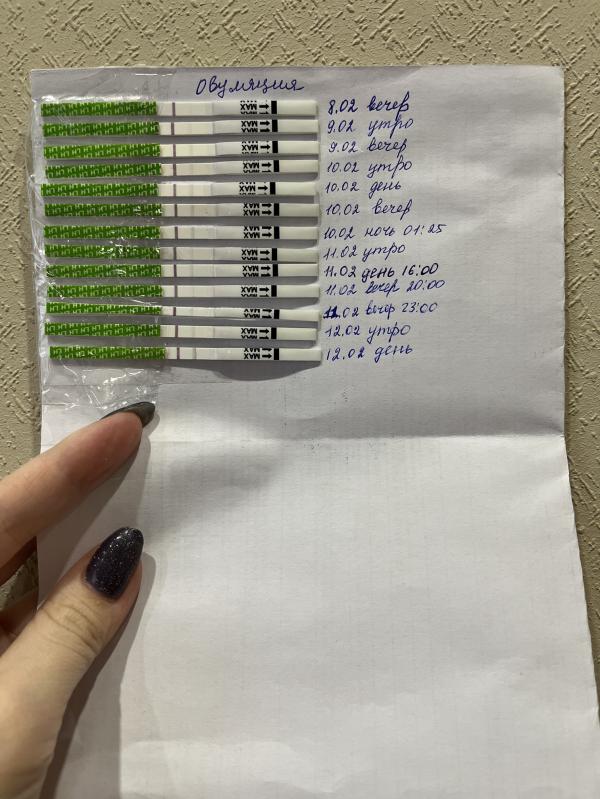 Овуляция
8.02 вечер
9.02 утро
9.02 вечер
10.02 утро
10.02 день
10.02 вечер
10.02 ночь 01:25
11.02 утро
11.02 день 16:00
11.02 вечер 20:00
11.02 вечер 23:00
12.02 утро
12.02 день
MAX
MAX
MAX
MAX
MAX
MAX
MAX
MAX
MAX
MAX
MAX
MAX
MAX